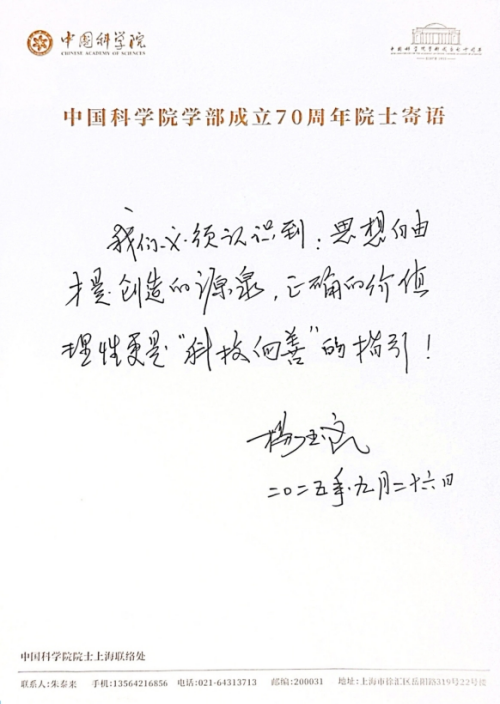 中国科学院
CHINESE ACADEMY OF SCIENCES
中国科学院学部成立70周年院士寄语
我们必须认识到：思想自由
才是创造的源泉，正确的价值
理性更是“科技向善”的指引！
杨玉良
二〇二五年.九月二十六日
中国科学院院士上海联络处
联系人:朱泰来 手机:13564216856 电话:021-64313713 邮编:200031 地址:上海市徐汇区岳阳路319号22号楼